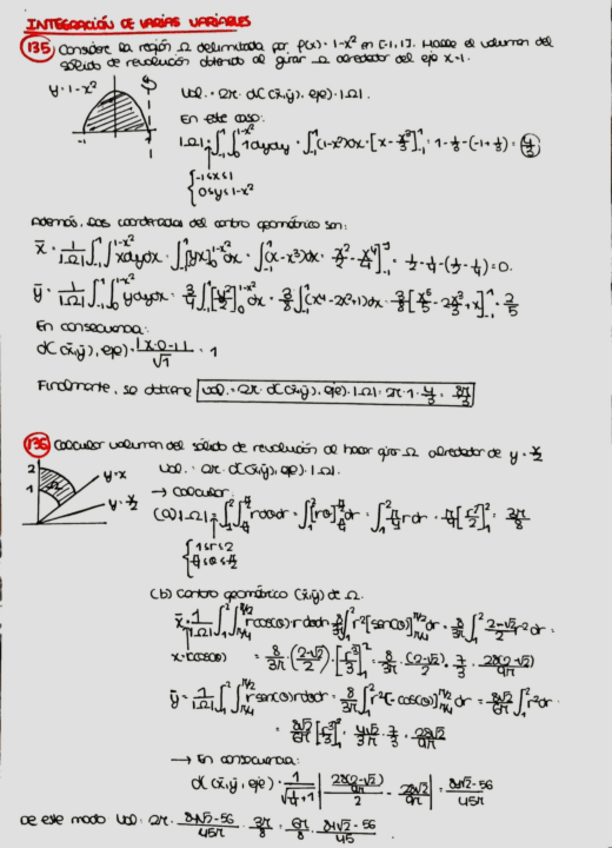 INTEGRACIÓN DE VARIAS VARIABLES
135) Considere la región Ω delimitada por f(x) = 1-x² en [-1,1]. Halle el volumen del
sólido de revolución obtenido al girar Ω alrededor del eje x=1.
y=1-x²
-1 1
Vol. = 2π · d((x̄,ȳ), eje) · |Ω|.
En este caso:
|Ω| = ∫₋₁¹ ∫₀^(1-x²) 1 dy dx = ∫₋₁¹ (1-x²) dx = [x - x³/3]₋₁¹ = 1 - 1/3 - (-1 + 1/3) = 4/3
{ -1≤x≤1
0≤y≤1-x²
Además, las coordenadas del centro geométrico son:
x̄ = 1/|Ω| ∫₋₁¹ ∫₀^(1-x²) x dy dx = ∫₋₁¹ [yx]₀^(1-x²) dx = ∫₋₁¹ (x-x³) dx = x²/2 - x⁴/4]₋₁¹ = 1/2 - 1/4 - (1/2 - 1/4) = 0.
ȳ = 1/|Ω| ∫₋₁¹ ∫₀^(1-x²) y dy dx = 3/4 ∫₋₁¹ [y²/2]₀^(1-x²) dx = 3/8 ∫₋₁¹ (x⁴-2x²+1) dx = 3/8 [x⁵/5 - 2x³/3 + x]₋₁¹ = 2/5
En consecuencia:
d((x̄,ȳ), eje) = |1·0-1|/√1 = 1
Finalmente, se obtiene Vol. = 2π · d((x̄,ȳ), eje) · |Ω| = 2π · 1 · 4/3 = 8π/3
136) Calcular volumen del sólido de revolución al hacer giro Ω alrededor de y = x/2
2
1
Ω
y=x
y=x/2
Vol. = 2π · d((x̄,ȳ), eje) · |Ω|.
→ Calcular:
(a) |Ω| = ∫₁² ∫_(π/4)^(π/2) r dθ dr = ∫₁² [rθ]_(π/4)^(π/2) dr = ∫₁² π/4 r dr = π/4 [r²/2]₁² = 3π/8
{ 1≤r≤2
π/4≤θ≤π/2
(b) Centro geométrico (x̄,ȳ) de Ω.
x̄ = 1/|Ω| ∫₁² ∫_(π/4)^(π/2) r cos(θ) · r dθ dr = 8/3π ∫₁² r² [sen(θ)]_(π/4)^(π/2) dr = 8/3π ∫₁² (2-√2)/2 r² dr =
x = r cos(θ)
= 8/3π · (2-√2)/2 · [r³/3]₁² = 8/3π · (2-√2)/2 · 7/3 = 28(2-√2)/9π
ȳ = 1/|Ω| ∫₁² ∫_(π/4)^(π/2) r sen(θ) r dθ dr = 8/3π ∫₁² r² [-cos(θ)]_(π/4)^(π/2) dr = 8√2/6π ∫₁² r² dr =
= 8√2/6π [r³/3]₁² = 4√2/3π · 7/3 = 28√2/9π
→ En consecuencia:
d((x̄,ȳ), eje) = 1/√(1/4+1) | 28(2-√2)/9π / 2 - 28√2/9π | = 84√2-56/45π
De este modo Vol. = 2π · 84√2-56/45π · 3π/8 = 6π/8 · 84√2-56/45 .